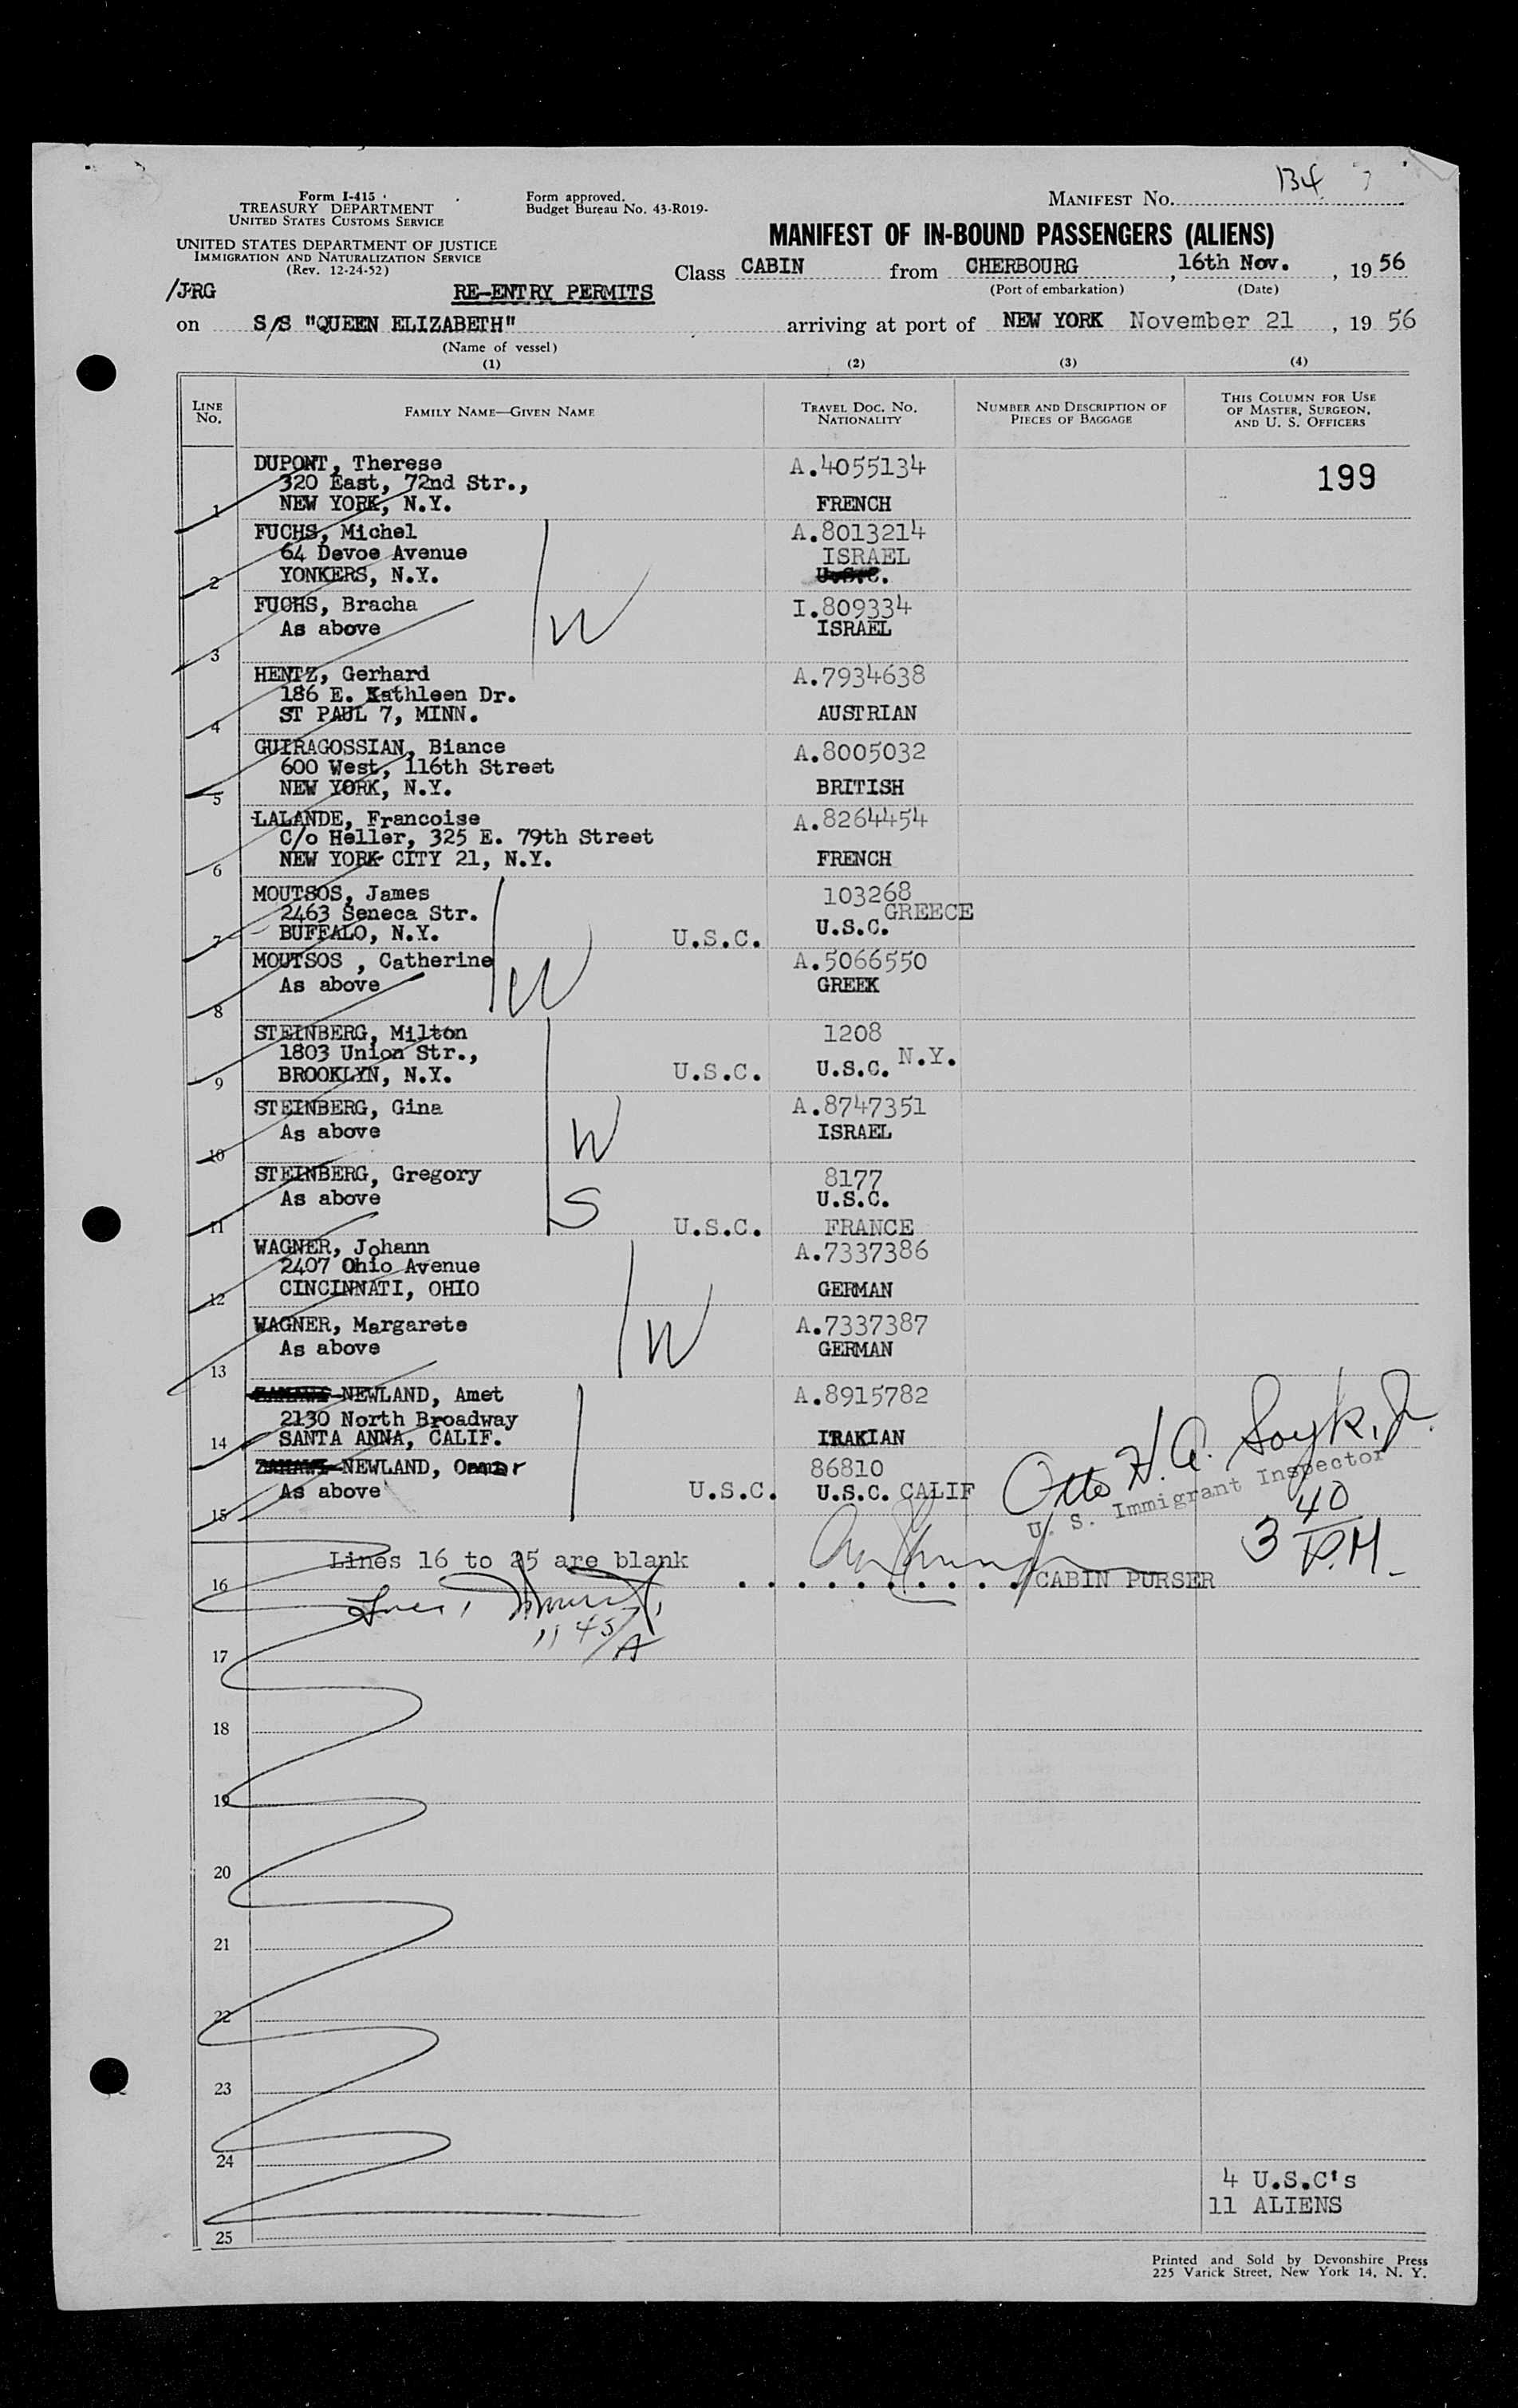 134
Form I-415
TREASURY DEPARTMENT
UNITED STATES CUSTOMS SERVICE
Form approved.
Budget Bureau No. 43-R019-
MANIFEST NO.
UNITED STATES DEPARTMENT OF JUSTICE
IMMIGRATION AND NATURALIZATION SERVICE
(Rev. 12-24-52)
MANIFEST OF IN-BOUND PASSENGERS (ALIENS)
Class CABIN from CHERBOURG, 16th Nov., 1956
(Port of embarkation) (Date)
/JRG RE-ENTRY PERMITS
on S/S "QUEEN ELIZABETH" arriving at port of NEW YORK November 21, 1956
(Name of vessel)
(1) (2) (3) (4)
LINE NO.
FAMILY NAME—GIVEN NAME
TRAVEL DOC. NO. NATIONALITY
NUMBER AND DESCRIPTION OF PIECES OF BAGGAGE
THIS COLUMN FOR USE OF MASTER, SURGEON, AND U. S. OFFICERS
DUPONT, Therese A.4055134 199
320 East, 72nd Str.,
1 NEW YORK, N.Y. FRENCH
FUCHS, Michel A.8013214
64 Devoe Avenue ISRAEL
2 YONKERS, N.Y. U.S.C.
FUCHS, Bracha I.809334
As above ISRAEL
W
3
HENTZ, Gerhard A.7934638
186 E. Kathleen Dr.
4 ST PAUL 7, MINN. AUSTRIAN
GUIRAGOSSIAN, Biance A.8005032
600 West, 116th Street
5 NEW YORK, N.Y. BRITISH
LALANDE, Francoise A.8264454
C/o Heller, 325 E. 79th Street
6 NEW YORK CITY 21, N.Y. FRENCH
MOUTSOS, James 103268
2463 Seneca Str. GREECE
7 BUFFALO, N.Y. U.S.C. U.S.C.
MOUTSOS , Catherine A.5066550
As above GREEK
W
8
STEINBERG, Milton 1208
1803 Union Str., N.Y.
9 BROOKLYN, N.Y. U.S.C. U.S.C.
STEINBERG, Gina A.8747351
As above W ISRAEL
10
STEINBERG, Gregory 8177
As above S U.S.C.
11 U.S.C. FRANCE
WAGNER, Johann A.7337386
2407 Ohio Avenue
12 CINCINNATI, OHIO GERMAN
WAGNER, Margarete A.7337387
As above W GERMAN
13
NEWLAND, Amet A.8915782
2130 North Broadway
14 SANTA ANNA, CALIF. IRAKIAN
NEWLAND, Oamar 86810
As above U.S.C. U.S.C. CALIF
15
Otto H. A.
U. S. Immigrant Inspector
3 40 P.M.
Lines 16 to 25 are blank
16 CABIN PURSER
11 45/A
17
18
19
20
21
22
23
24
4 U.S.C's
11 ALIENS
25
Printed and Sold by Devonshire Press
225 Varick Street, New York 14, N. Y.